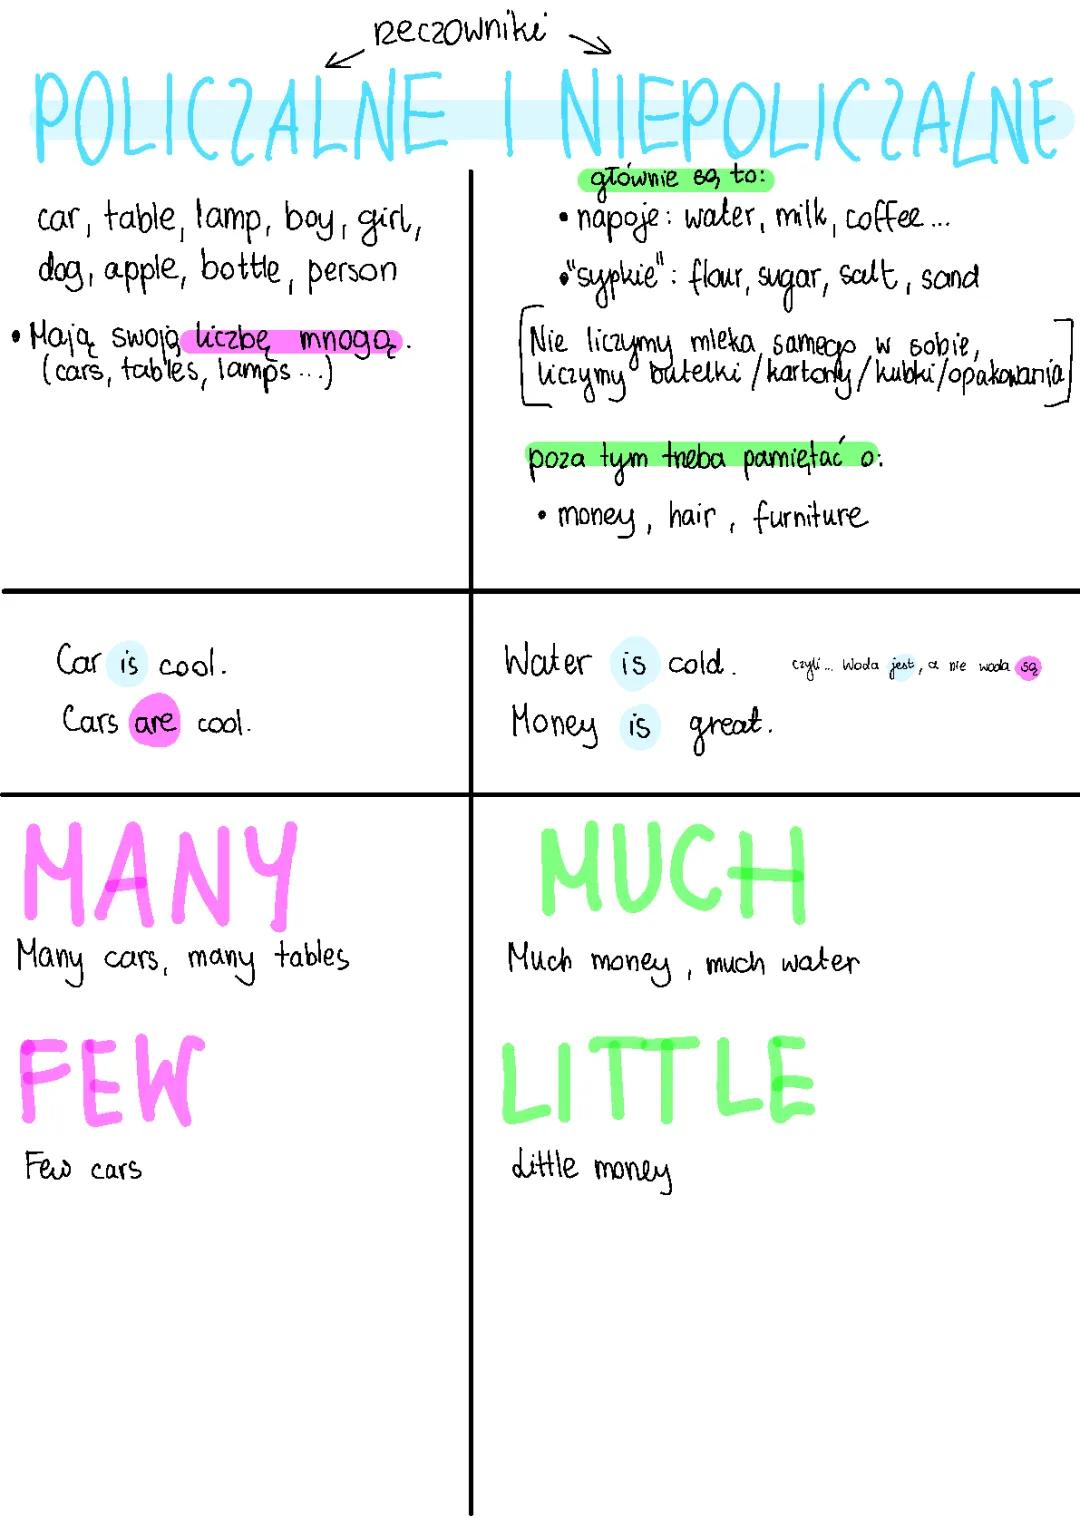 rzeczowniki
POLICZALNE I NIEPOLICZALNE
car, table, lamp, boy, girl,
dog, apple, bottle, person
• Mają swoją liczbę mnogą.
(cars, tables, lamps...)
głównie są to:
• napoje: water, milk, coffee...
• "sypkie": flour, sugar, salt, sand
[Nie liczymy mleka samego w sobie,
liczymy butelki/kartony/kubki/opakowania]
poza tym trzeba pamiętać o:
• money, hair, furniture
Car is cool.
Cars are cool.
Water is cold. czyli... woda jest, a nie woda są
Money is great.
MANY
Many cars, many tables
FEW
Few cars
MUCH
Much money, much water
LITTLE
Little money